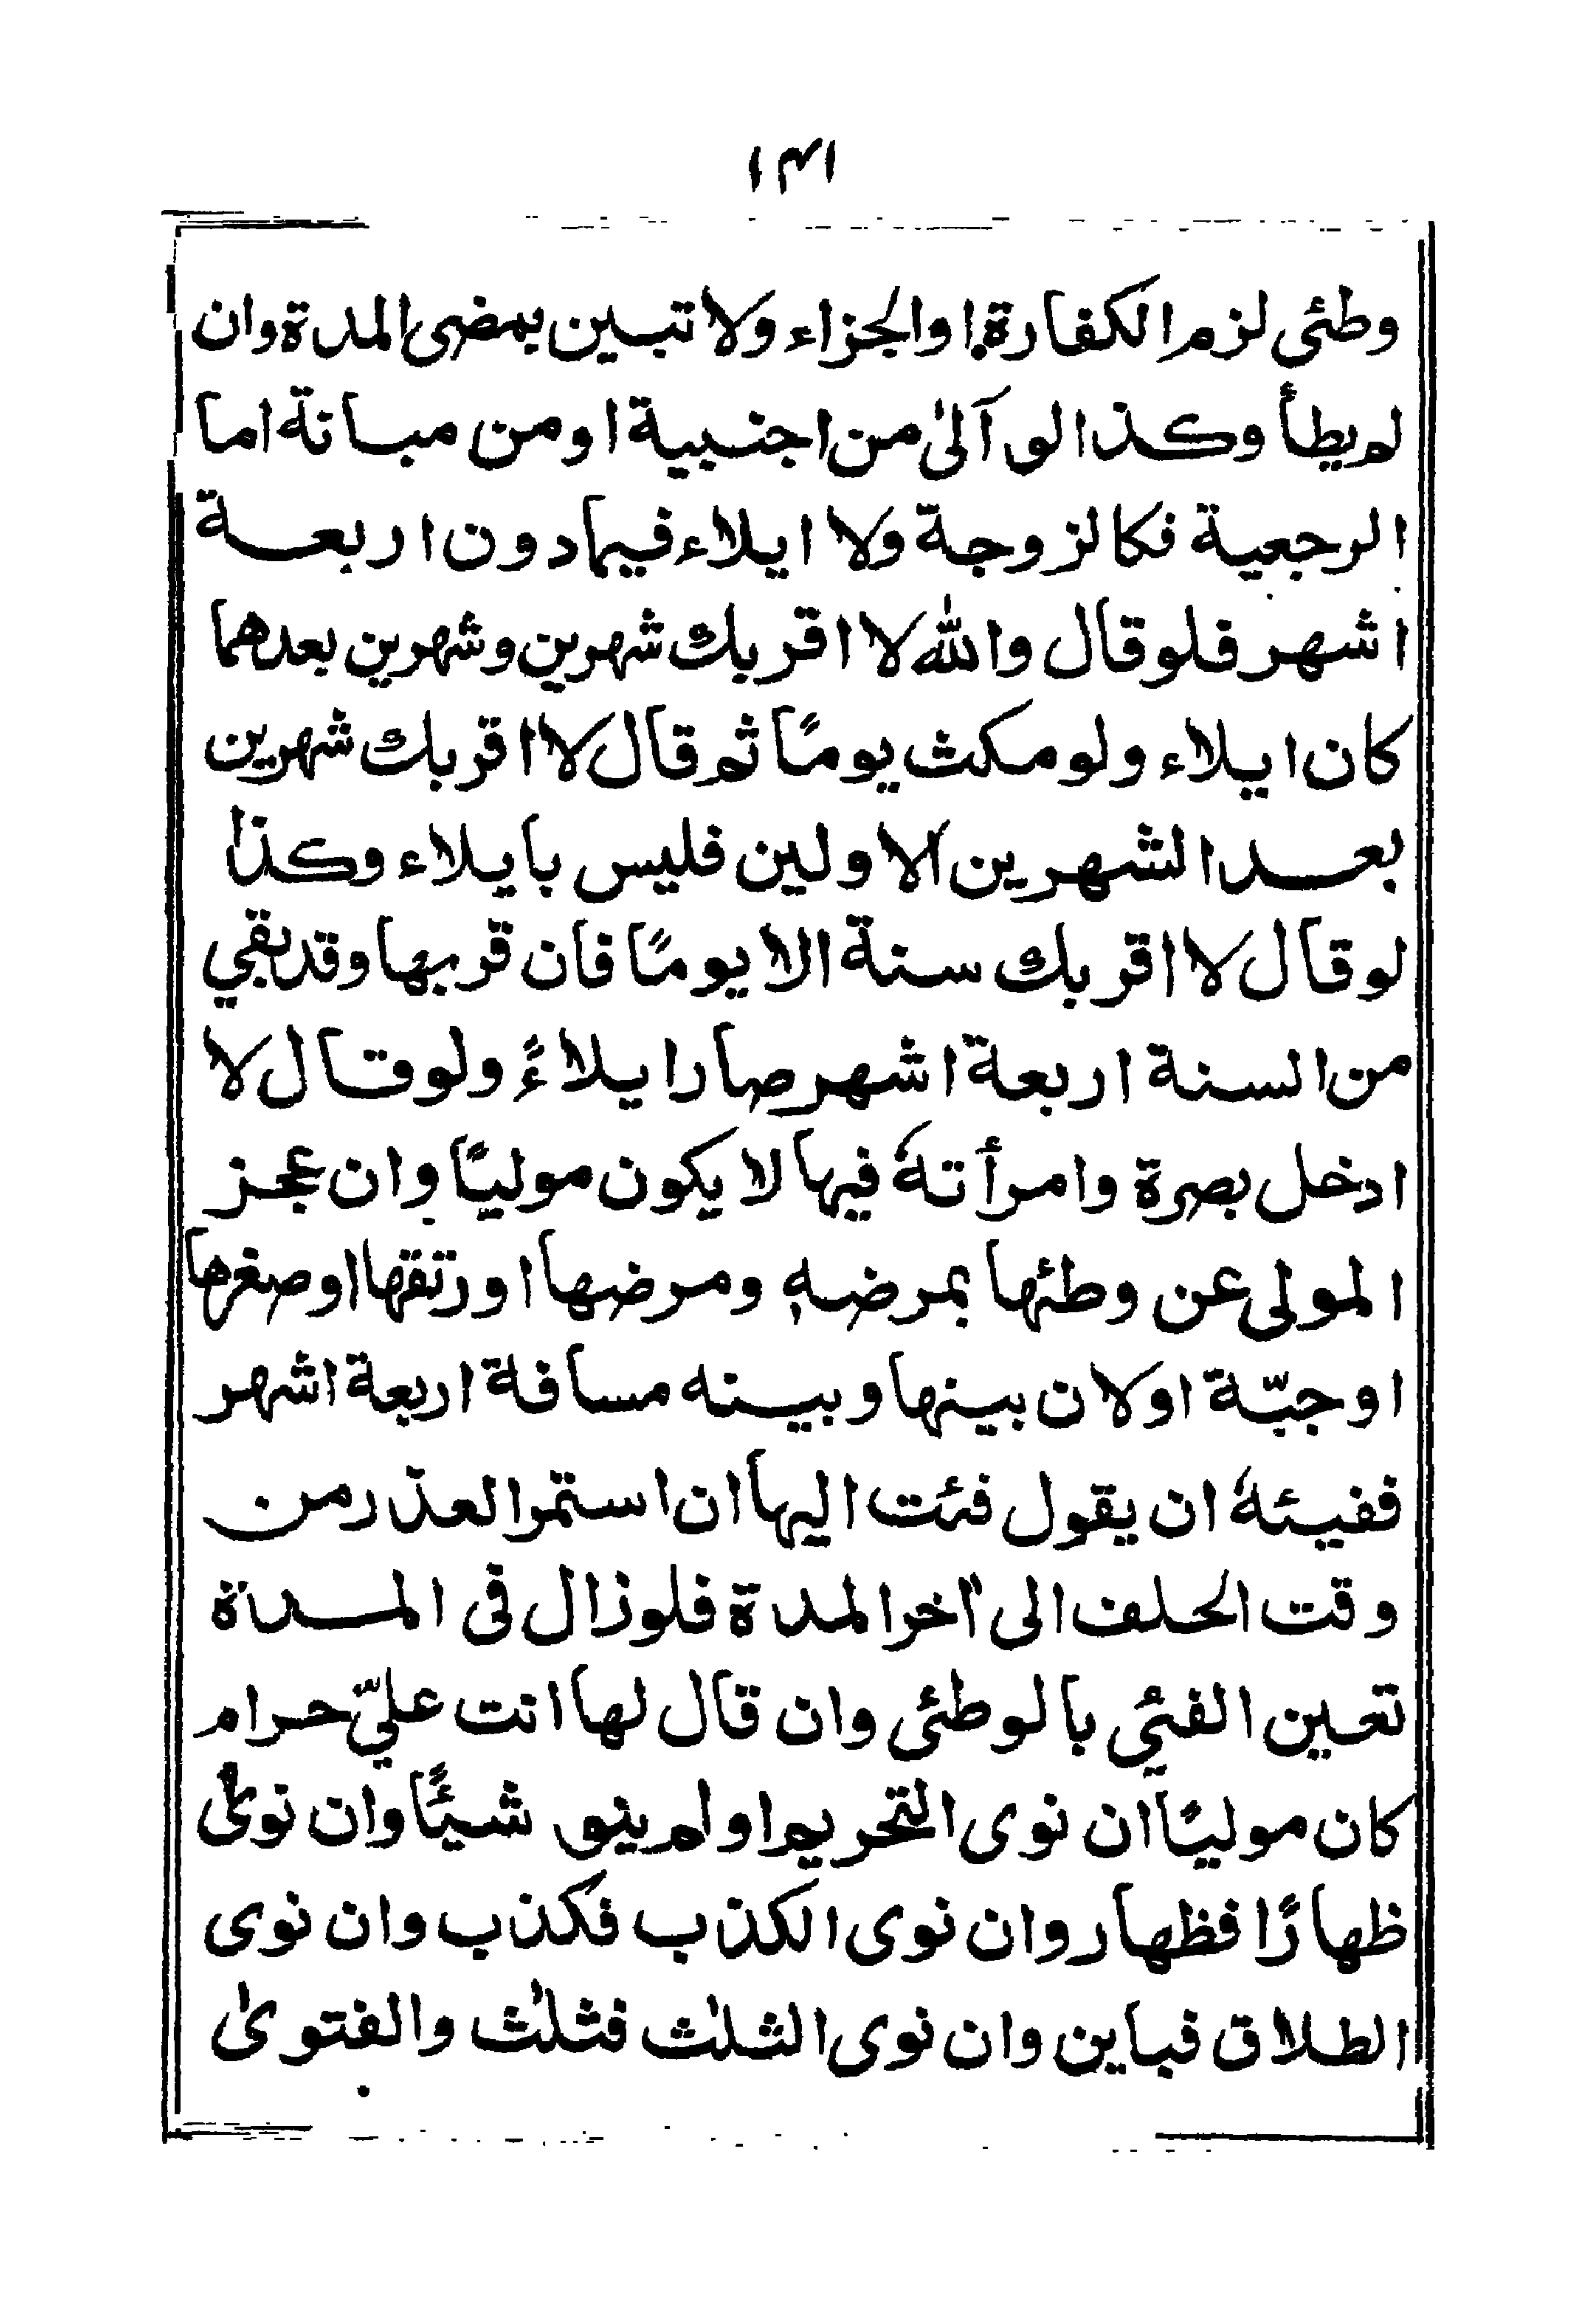 ١٣١
وطئي لزم الكفارة او الجزاء ولا تبين بمضي المدة وان
لم يطأ وكذا لو آلىٰ من اجنبية او من مبانة اما
الرجعية فكالزوجة ولا ايلاء فيما دون اربعة
اشهر فلو قال والله لا اقربك شهرين وشهرين بعدهما
كان ايلاء ولو مكث يومًا ثم قال لا اقربك شهرين
بعد الشهرين الاولين فليس بايلاء وكذا
لو قال لا اقربك سنة الا يومًا فان قربها وقد بقي
من السنة اربعة اشهر صار ايلاءً ولو قال لا
ادخل بصرة وامرأتهٗ فيها لا يكون موليًا وان عجز
المولى عن وطئها بمرضهٖ ومرضها او رتقها او صغرها
او جبّة او لان بينها وبينه مسافة اربعة اشهر
ففيئهٗ ان يقول فئت اليها ان استمر العذر من
وقت الحلف الى اٰخر المدة فلو زال في المدة
تعين الفئي بالوطئي وان قال لها انت عليّ حرام
كان موليًا ان نوى التحريم او لم ينو شيئًا وان نوىٰ
ظهارًا فظهار وان نوى الكذب فكذب وان نوى
الطلاق فباين وان نوى الثلٰث فثلٰث والفتوىٰ